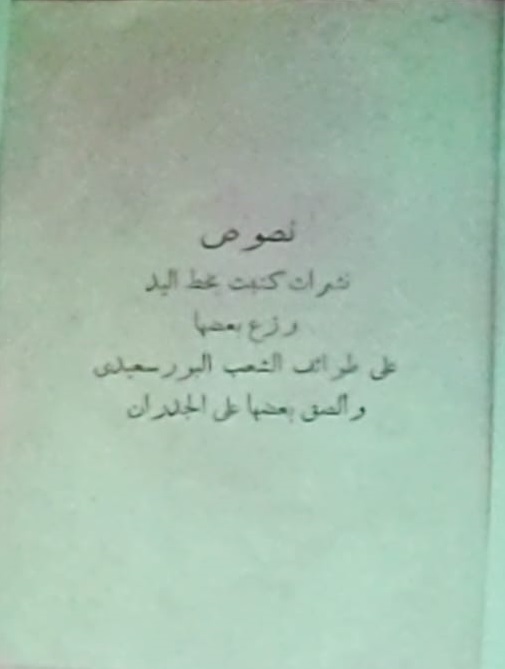 نصوص
نشرات كتبت بخط اليد
وزع بعضها
على طوائف الشعب البورسعيدى
وألصق بعضها على الجدران